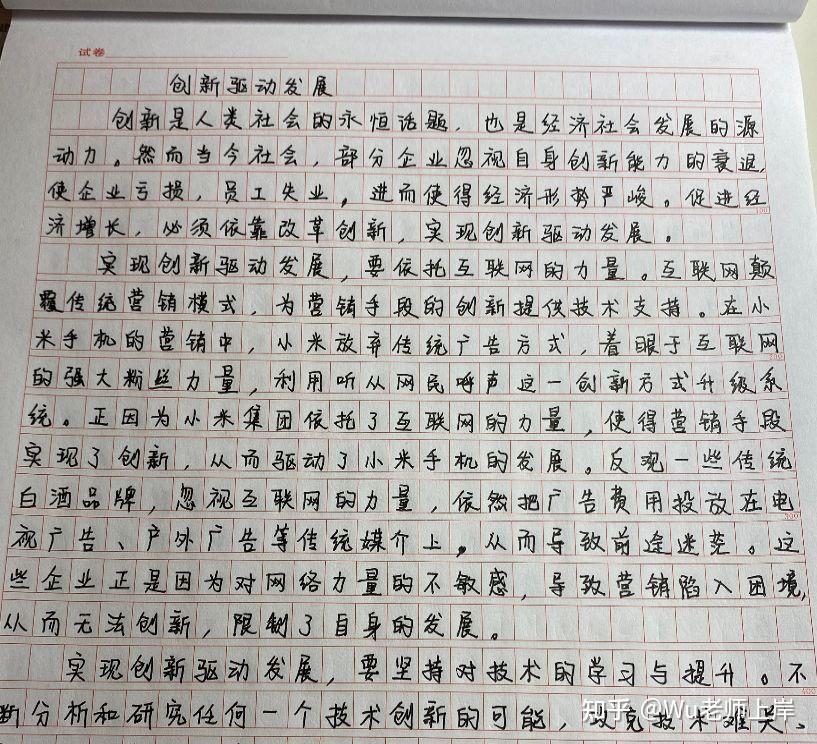 试卷
创新驱动发展
创新是人类社会的永恒话题，也是经济社会发展的源
动力。然而当今社会，部分企业忽视自身创新能力的衰退，
使企业亏损，员工失业，进而使得经济形势严峻。促进经
济增长，必须依靠改革创新，实现创新驱动发展。
实现创新驱动发展，要依托互联网的力量。互联网颠
覆传统营销模式，为营销手段的创新提供技术支持。在小
米手机的营销中，小米放弃传统广告方式，着眼于互联网
的强大粉丝力量，利用听从网民呼声这一创新方式升级系
统。正因为小米集团依托了互联网的力量，使得营销手段
实现了创新，从而驱动了小米手机的发展。反观一些传统
白酒品牌，忽视互联网的力量，依然把广告费用投放在电
视广告、户外广告等传统媒介上，从而导致前途迷茫。这
些企业正是因为对网络力量的不敏感，导致营销陷入困境，
从而无法创新，限制了自身的发展。
实现创新驱动发展，要坚持对技术的学习与提升。不
断分析和研究任何一个技术创新的可能，攻克技术难关、
知乎 @Wu老师上岸